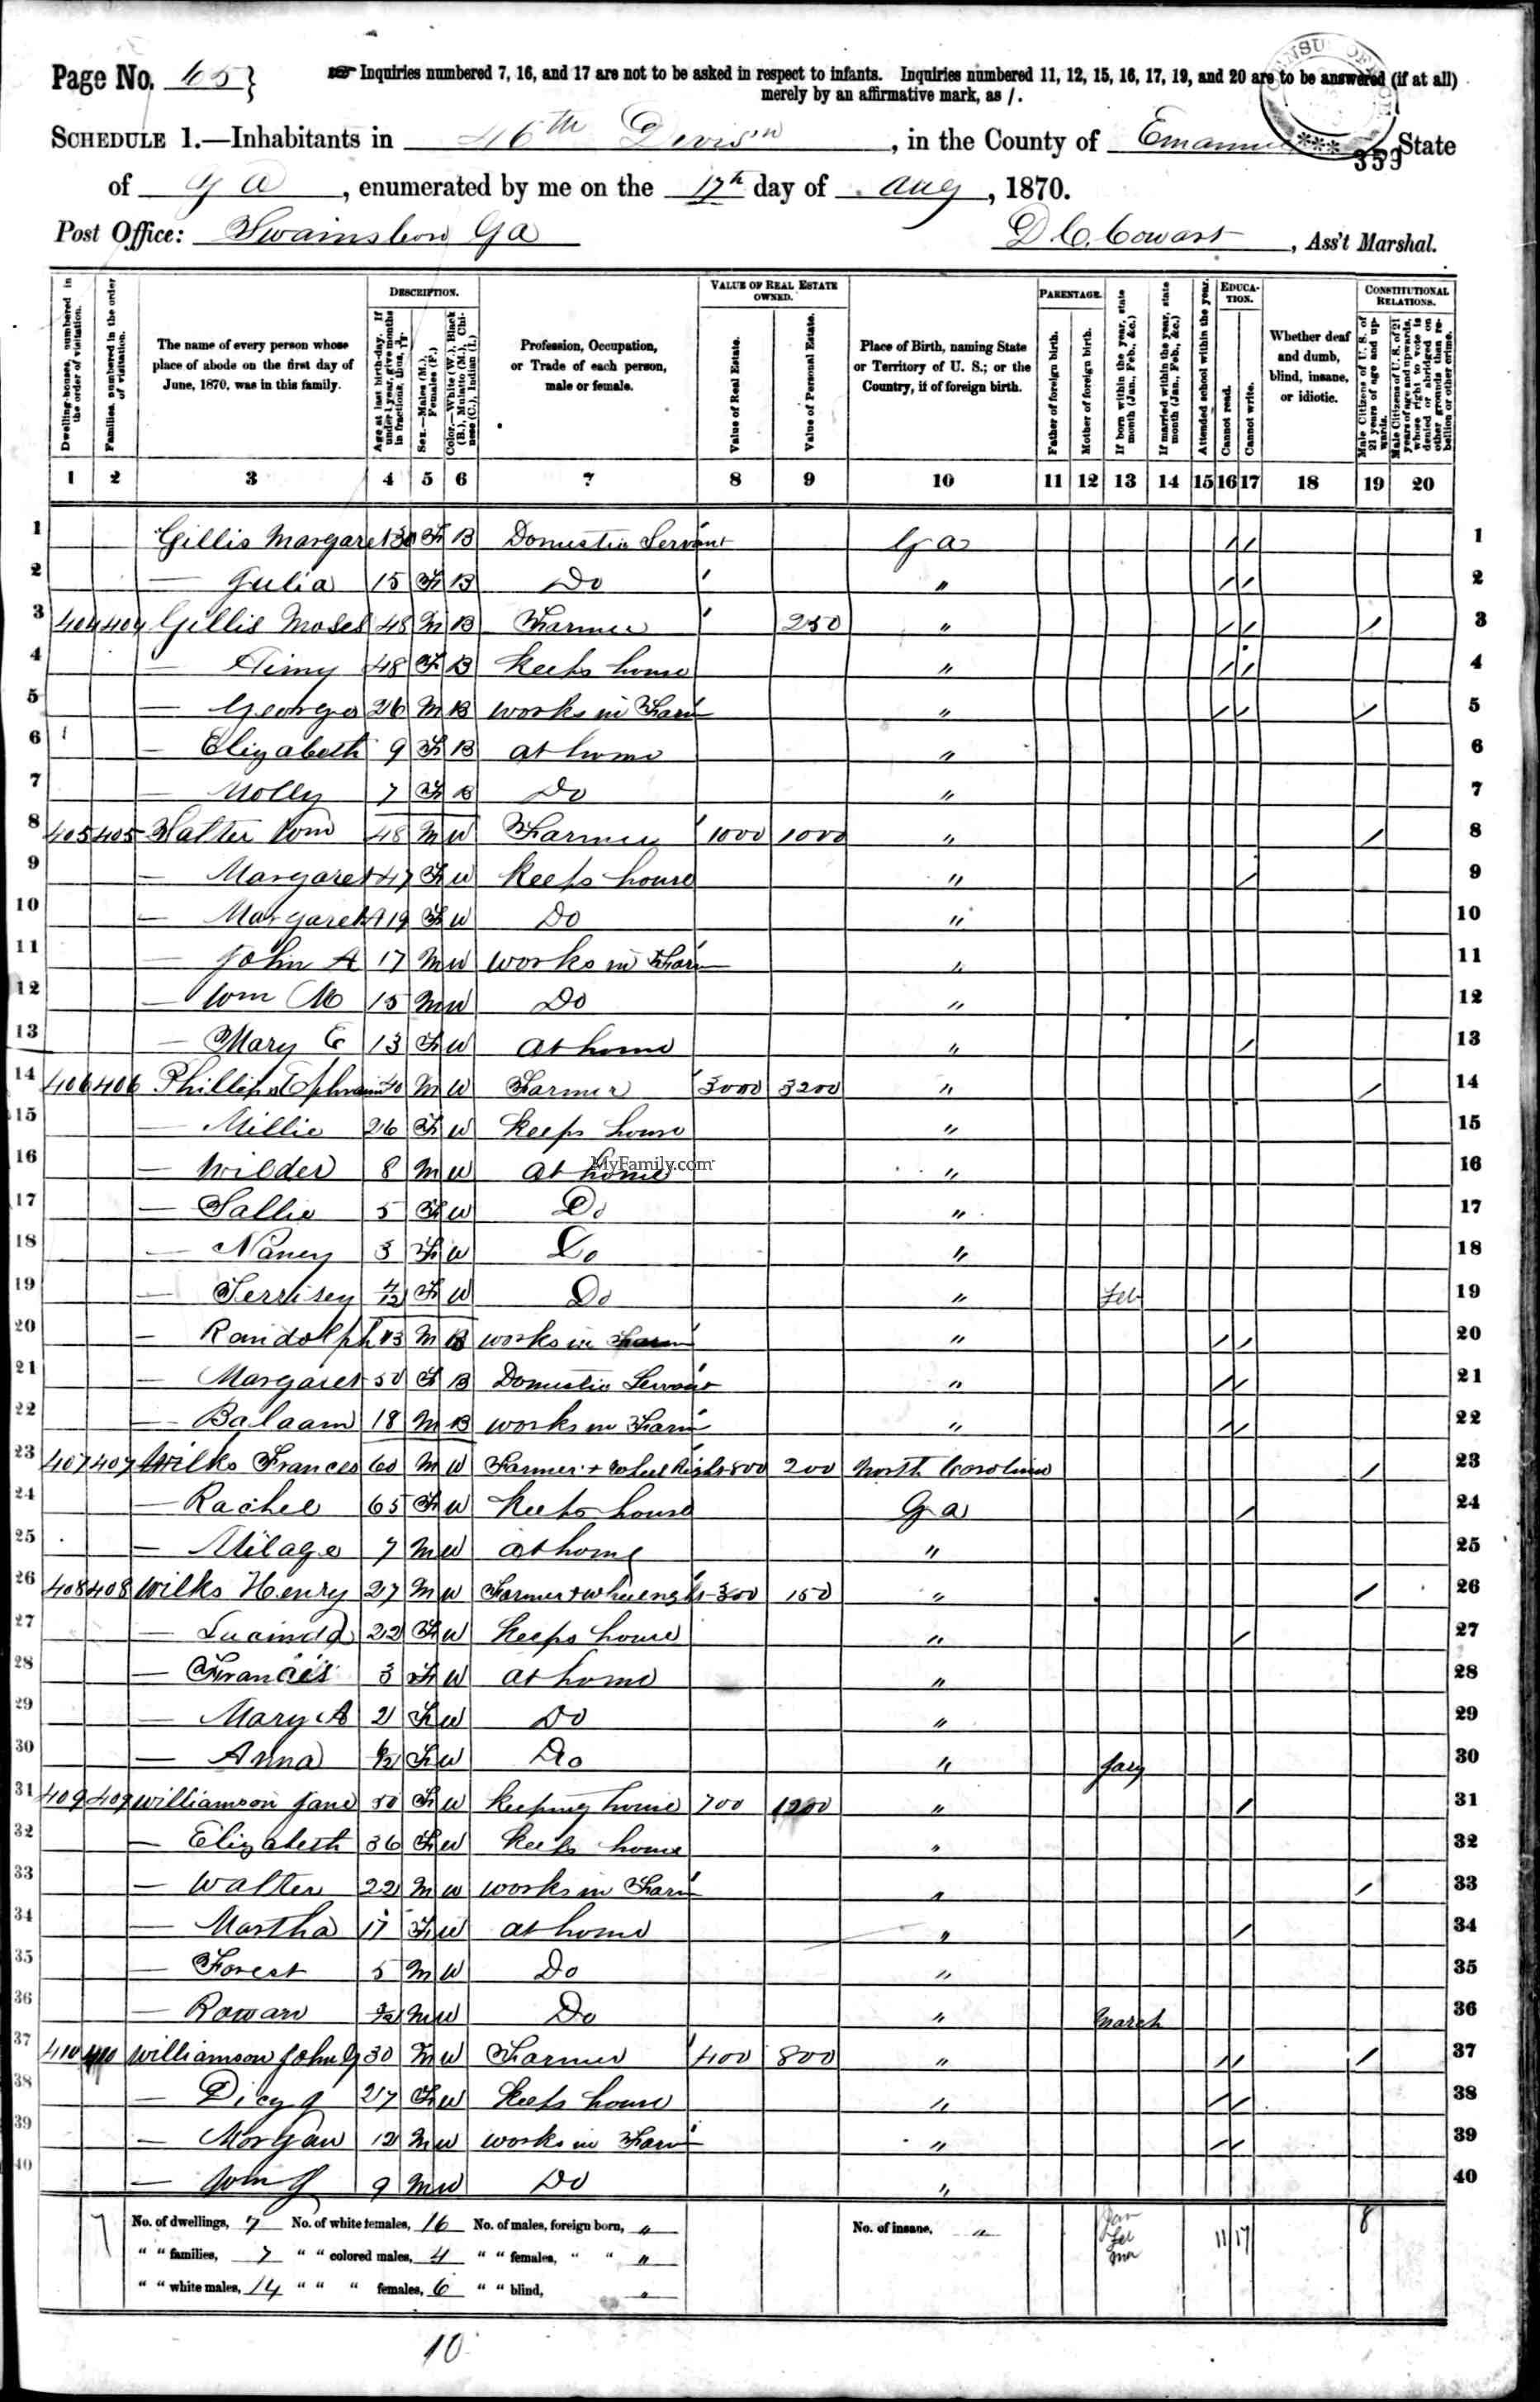 Page No. 65}
Inquiries numbered 7, 16, and 17 are not to be asked in respect to infants. Inquiries numbered 11, 12, 15, 16, 17, 19, and 20 are to be answered (if at all)
merely by an affirmative mark, as /.
SCHEDULE 1.—Inhabitants in 46th Devisn, in the County of Emanuel State
359
of Ga, enumerated by me on the 17th day of Aug, 1870.
Post Office: Swainsboro Ga
D. C. Cowart, Ass't Marshal.
Dwelling-houses, numbered in the order of visitation.
Families, numbered in the order of visitation.
The name of every person whose place of abode on the first day of June, 1870, was in this family.
DESCRIPTION.
Age at last birth-day. If under 1 year, give months in fractions, thus, 3/12.
Sex.—Males (M.), Females (F.)
Color.—White (W.), Black (B.), Mulatto (M.), Chinese (C.), Indian (I.)
Profession, Occupation, or Trade of each person, male or female.
VALUE OF REAL ESTATE OWNED.
Value of Real Estate.
Value of Personal Estate.
Place of Birth, naming State or Territory of U. S.; or the Country, if of foreign birth.
PARENTAGE.
Father of foreign birth.
Mother of foreign birth.
If born within the year, state month (Jan., Feb., &c.)
If married within the year, state month (Jan., Feb., &c.)
EDUCATION.
Attended school within the year.
Cannot read.
Cannot write.
Whether deaf and dumb, blind, insane, or idiotic.
CONSTITUTIONAL RELATIONS.
Male Citizens of U. S. of 21 years of age and upwards.
Male Citizens of U. S. of 21 years of age and upwards, whose right to vote is denied or abridged on other grounds than rebellion or other crime.
1 2 3 4 5 6 7 8 9 10 11 12 13 14 15 16 17 18 19 20
1 Gillis Margaret 30 F B Domestic Servant Ga / / 1
2 — Julia 15 F B Do " / / 2
3 404 404 Gillis Moses 48 M B Farmer 250 " / / / 3
4 — Aimy 48 F B Keeps house " / / 4
5 — George 26 M B works in Farm " / / / 5
6 — Elizabeth 9 F B at home " 6
7 — Molly 7 F B Do " 7
8 405 405 Wm 48 M W Farmer 1000 1000 " / 8
9 — Margaret 47 F W Keeps house " / 9
10 — Margaret A 19 F W Do " 10
11 — John A 17 M W works in Farm " 11
12 — Wm M 15 M W Do " 12
13 — Mary E 13 F W at home " / 13
14 406 406 Phillips Ephraim 40 M W Farmer 3000 3200 " / 14
15 — Millie 26 F W Keeps house " 15
16 — Wilder 8 M W at home " 16
MyFamily.com
17 — Sallie 5 F W Do " 17
18 — Nancy 3 F W Do " 18
19 — Serrisey 4/12 F W Do " Feb 19
20 — Randolph 13 M B works in Farm " / / 20
21 — Margaret 50 F B Domestic Servant " / / 21
22 — Balaam 18 M B works in Farm " / / 22
23 407 407 Wilks Frances 60 M W Farmer + Wheel Right 800 200 North Carolina / 23
24 — Rachel 65 F W Keeps house Ga / 24
25 — Milage 7 M W at home " 25
26 408 408 Wilks Henry 27 M W Farmer + 300 150 " / 26
27 — Lucinda 22 F W Keeps house " / 27
28 — Francis 3 F W at home " 28
29 — Mary A 2 F W Do " 29
30 — Anna F W Do " 30
31 409 409 Williamson Jane 50 F W Keeping house 700 1200 " / 31
32 — Elizabeth 36 F W Keeps house " 32
33 — Walter 22 M W works in Farm " / 33
34 — Martha 17 F W at home " / 34
35 — Forest 5 M W Do " 35
36 — Rowan M W Do " March 36
37 410 410 Williamson John G 30 M W Farmer 400 800 " / / / 37
38 — Dicy 27 F W Keeps house " / / 38
39 — Morgan 12 M W works in Farm " / / 39
40 — Wm J 9 M W Do " 40
7 No. of dwellings, 7 No. of white females, 16 No. of males, foreign born, " No. of insane, " Jan Feb Mar 11 17 8
" " families, 7 " " colored males, 4 " " females, " " "
" " white males, 14 " " " females, 6 " " blind, "
10